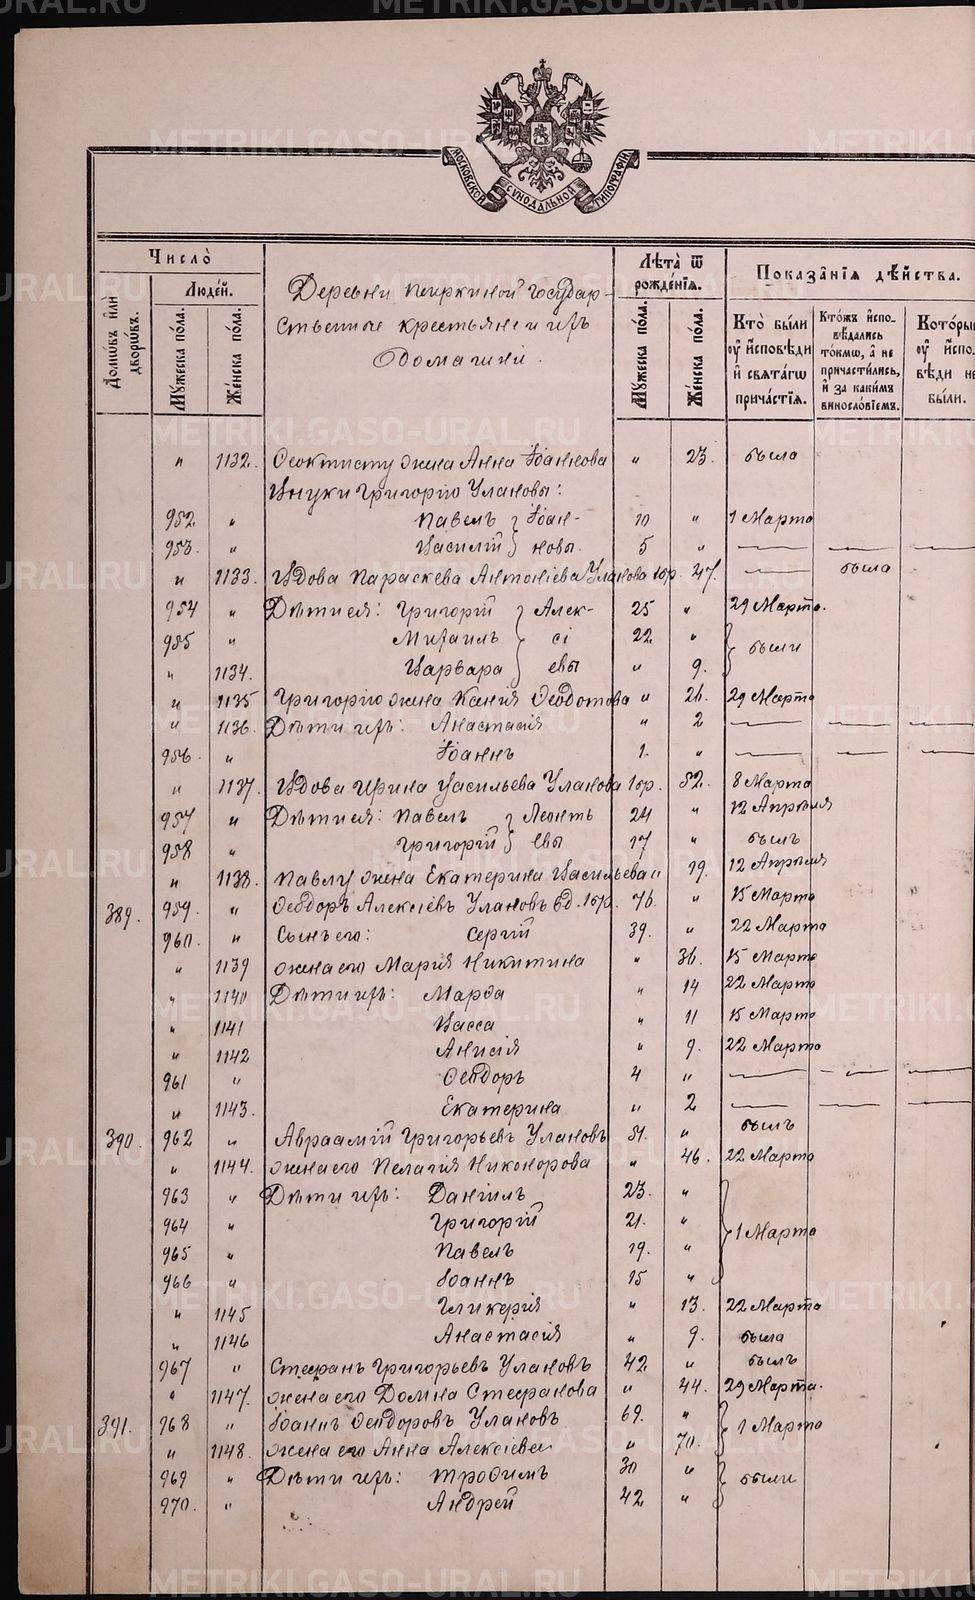 METRIKI.GASO-URAL.RU
МОСКОВСКОЙ СѴНОДАЛЬНОЙ ТИПОГРАФІИ
Число̀
Домѡвъ и҆лѝ дворѡвъ.
Люде́й.
Мꙋ́жеска по́ла.
Же́нска по́ла.
Деревни Пиркиной государ-
ственные крестьяне и ихъ
домашніе.
Лѣта̀ ѿ рожде́нїѧ.
Мꙋ́жеска по́ла.
Же́нска по́ла.
Показа̑нїѧ дѣ́йства.
Кто̀ бы́ли ᲂу҆ и҆сповѣ́ди и҆ свѧта́гѡ причас́тїѧ.
Кто́жъ и҆спо- вѣ́дались то́кмѡ, а҆ не причасти́лись, и҆ за каки́мъ винослові́емъ.
Кото́ры ᲂу҆ и҆спо- вѣ́ди не бы́ли.
„ 1132. Ѳеоктисту жена Анна Іоаннова „ 23. была
Внуки Григорію Улановы:
952 „ Павелъ } Іоан- 10 „ 1 Марта
953. „ Василій } новы. 5 „ —
„ 1133. Вдова Параскева Антоніева Уланова 1 бр. 47. — была
954 „ Дѣти ея: Григорій } Алек- 25 „ 29 Марта.
955 „ Михаилъ } сі 22 „ } были
„ 1134. Варвара } евы „ 9.
„ 1135 Григорію жена Ксенія Ѳеодотова „ 26. 29 Марта
„ 1136. Дѣти ихъ: Анастасія „ 2 —
956. „ Іоаннъ 1. „ —
„ 1137. Вдова Ирина Васильева Уланова 1 бр. 52. 8 Марта
957 „ Дѣти ея: Павелъ } Леонть 24 „ 12 Апрѣля
958 „ Григорій } евы 17 „ былъ
„ 1138. Павлу жена Екатерина Васильева „ 19. 12 Апрѣля
389. 959. „ Ѳеодоръ Алексіевъ Улановъ вд. 1 бр. 76. „ 15 Марта
960. „ Сынъ его: Сергій 39. „ 22 Марта
„ 1139 жена его Марія Никитина „ 36. 15 Марта
„ 1140 Дѣти ихъ: Марѳа „ 14 22 Марта
„ 1141 Васса „ 11 15 Марта
„ 1142 Анисія „ 9. 22 Марта
961 „ Ѳеодоръ 4 „ —
„ 1143. Екатерина „ 2 —
390. 962 „ Авраамій Григорьевъ Улановъ 51. „ былъ
„ 1144. жена его Пелагія Никонорова „ 46. 22 Марта
963 „ Дѣти ихъ: Даніилъ 23. „
964 „ Григорій 21. „ } 1 Марта
965 „ Павелъ 19. „
966 „ Іоаннъ 15 „
„ 1145 Гликерія „ 13. 22 Марта
„ 1146 Анастасія „ 9. была
967 „ Стефанъ Григорьевъ Улановъ 42. „ былъ
„ 1147. жена его Домна Стефанова „ 44. 29 Марта.
391. 968 „ Іоаннъ Ѳеодоровъ Улановъ 69. „ } 1 Марта
„ 1148. жена его Анна Алексіева „ 70.
969 „ Дѣти ихъ: Трофимъ 30 „ } были
970. „ Андрей 42 „